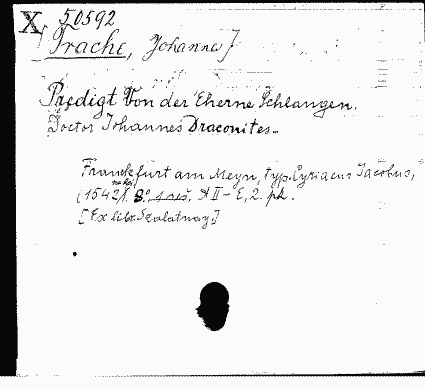 X 50592
[Trache, Johannes]
Predigt Von der Eherne Schlangen.
Doctor Johannes Draconites.
Franckfurt am Meyn, typ. Cyriacus Jacobus,
(1542). 8° A II - E, 2.
[Ex libr. Szalatnay.]